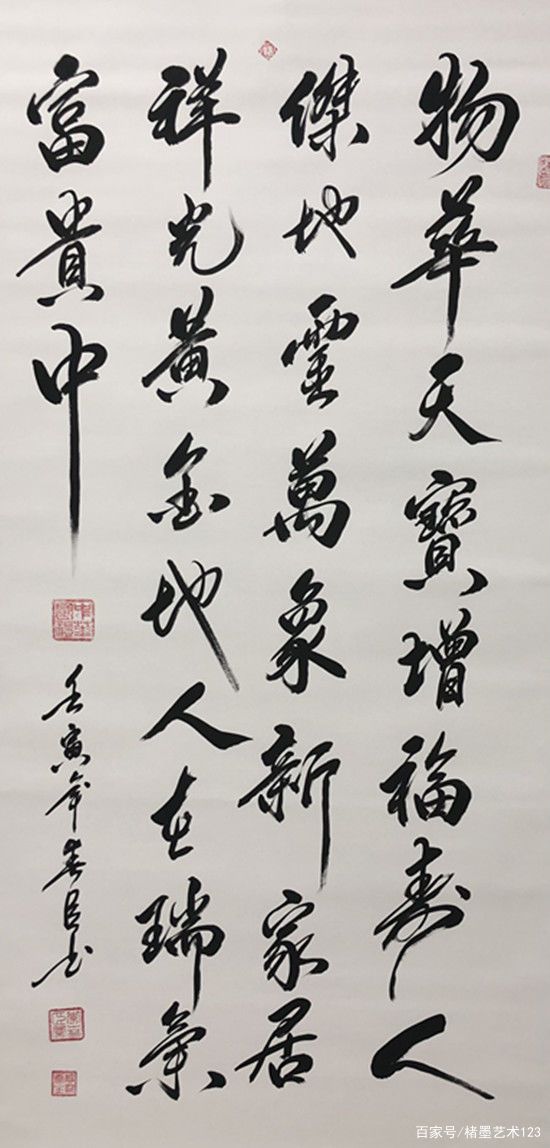 物華天寶增福壽人
傑地靈萬象新家居
祥光黃金地人在瑞氣
富貴中
壬寅年春呂书
百家号/楮墨艺术123